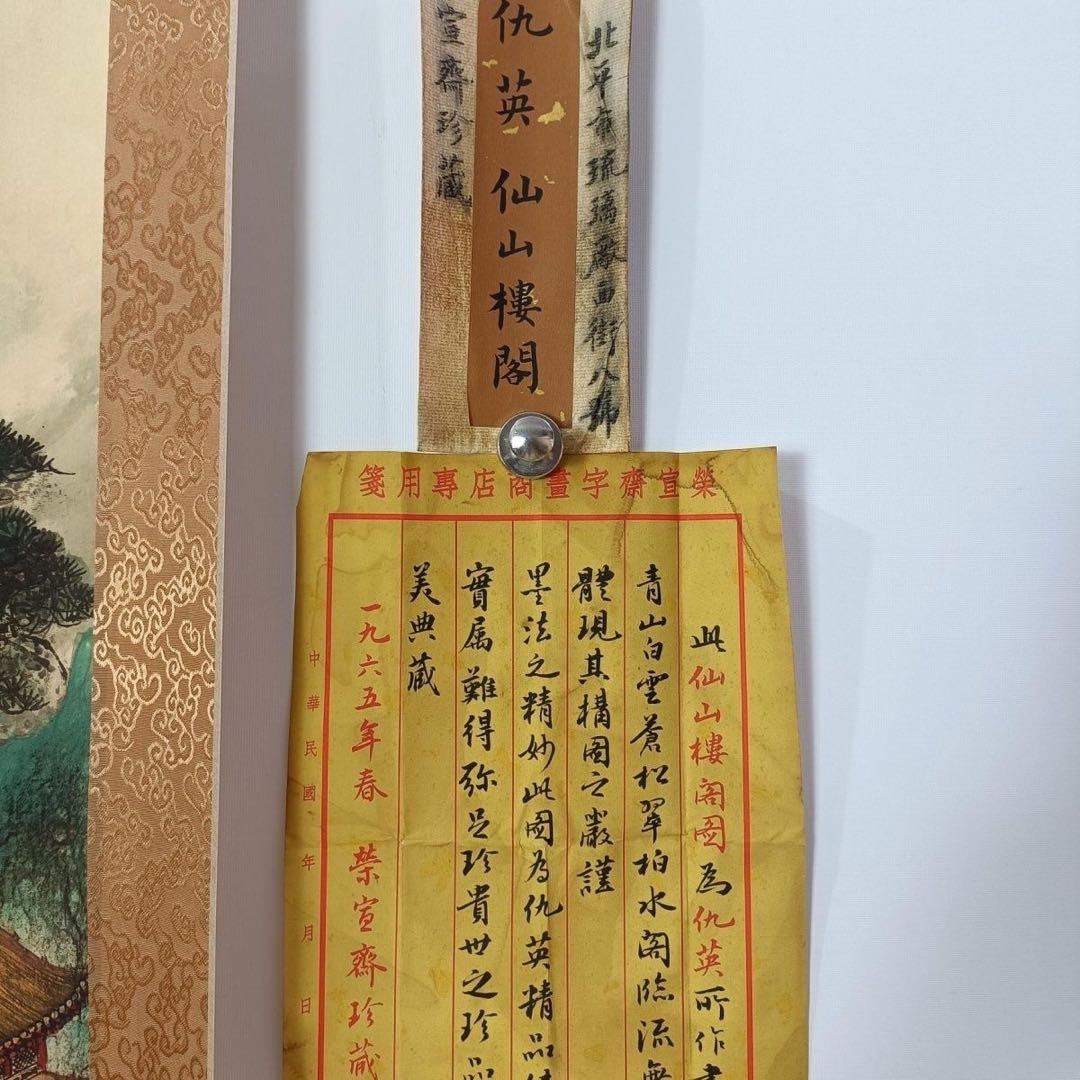 北平市琉璃厰西街八號
仇英 仙山樓閣
宣齋珍藏
榮宣齋字畫商店專用箋
此仙山樓阁圖為仇英所作
青山白雲蒼松翠柏水阁臨流
體現其構图之嚴謹
墨法之精妙此图為仇英精品
實属難得弥足珍貴世之珍品
美典藏
一九六五年春 榮宣齋珍藏
中華民國 年 月 日